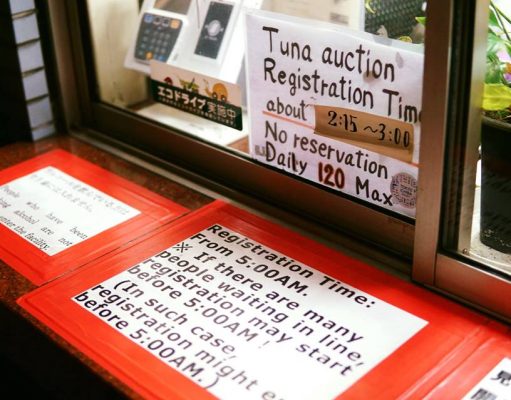 Tuna auction
Registration Tim
about 2:15~3:00
No reservation
Daily 120 Max
エコドライブ実施中
who have been
alcohol are not
enter the facility.
Registration Time:
From 5:00AM.
※ If there are many
people waiting in line,
registration may start
before 5:00AM !
(In such case,
registration might e
before 5:00AM.)
見